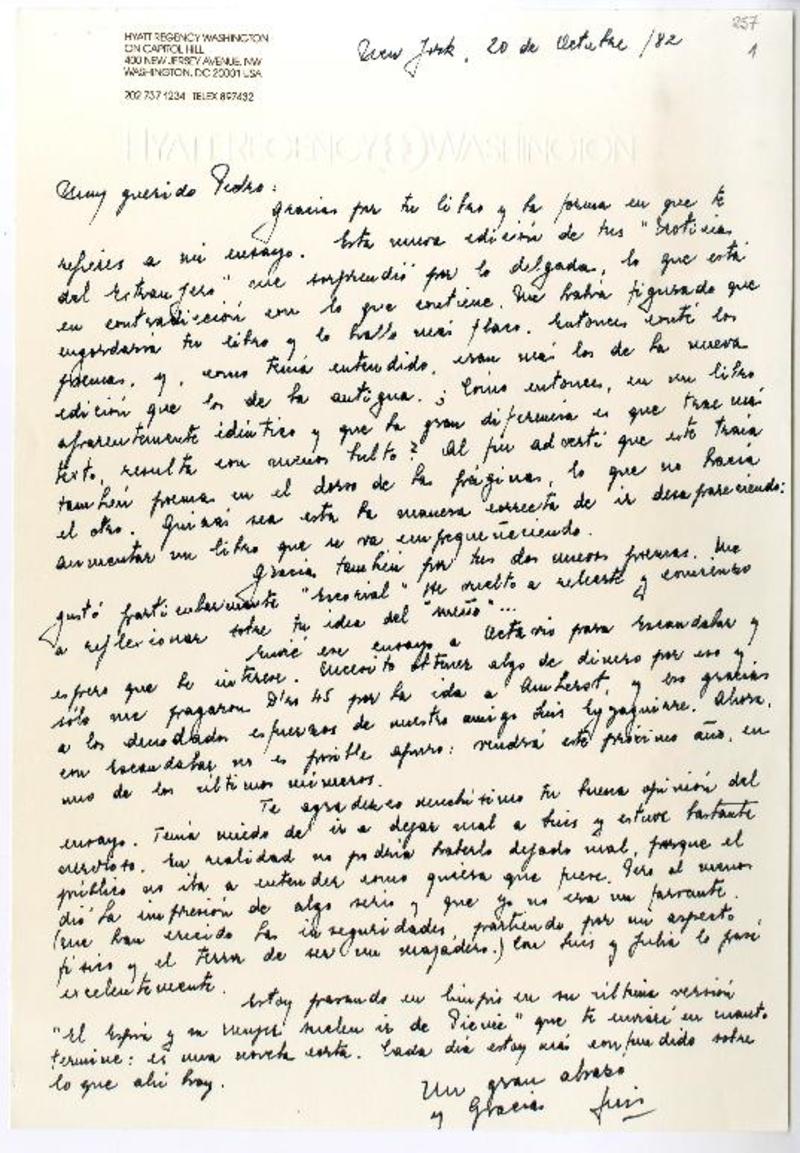 HYATT REGENCY WASHINGTON
ON CAPITOL HILL
400 NEW JERSEY AVENUE, NW
WASHINGTON, DC 20001 USA
202 737 1234 TELEX 897432
257
1
New York, 20 de Octubre /82
HYATT REGENCY WASHINGTON
Muy querido Pedro:
Gracias por tu libro y la forma en que te
refieres a mi ensayo. Esta nueva edición de tus "Noticias
del Extranjero" me sorprendió por lo delgada, lo que está
en contradicción con lo que contiene. Me había figurado que
engordaría tu libro y lo hallo más flaco. Entonces conté los
poemas, y, como tenía entendido, eran más los de la nueva
edición que los de la antigua. ¿Cómo entonces, en un libro
aparentemente idéntico y que la gran diferencia es que trae más
texto, resulta con menos bulto? Al fin advertí que este traía
también poemas en el dorso de las páginas, lo que no hacía
el otro. Quizás sea esta la manera correcta de ir desapareciendo:
aumentar un libro que se va empequeñeciendo.
Gracias también por tus dos nuevos poemas. Me
gustó particularmente "Escorial" He vuelto a releerte y comienzo
a reflexionar sobre tu idea del "sueño"...
Envié ese ensayo a Octavio para Escandalar y
espero que le interese. Necesito obtener algo de dinero por eso y
sólo me pagaron D'rs 45 por la ida a Amherst, y eso gracias
a los denodados esfuerzos de nuestro amigo Luis Eyzaguirre. Ahora,
con Escandalar no es posible apuro: vendrá este próximo año, en
uno de los últimos números.
Te agradezco muchísimo tu buena opinión del
ensayo. Tenía miedo de ir a dejar mal a Luis y estuve bastante
nervioso. En realidad no podría haberlo dejado mal, porque el
público no iba a entender como quiera que fuese. Pero al menos
dió la impresión de algo serio y que yo no era un farsante.
(Me han crecido las inseguridades, partiendo por mi aspecto
físico y el terror de ser un majadero.) Con Luis y Julia lo pasé
excelentemente.
Estoy pasando en limpio en su última versión
"El Espía y su mujer suelen ir de Picnic" que te enviaré en cuanto
termine: es una novela corta. Cada día estoy más confundido sobre
lo que ahí hay.
Un gran abrazo
y Gracias Luis